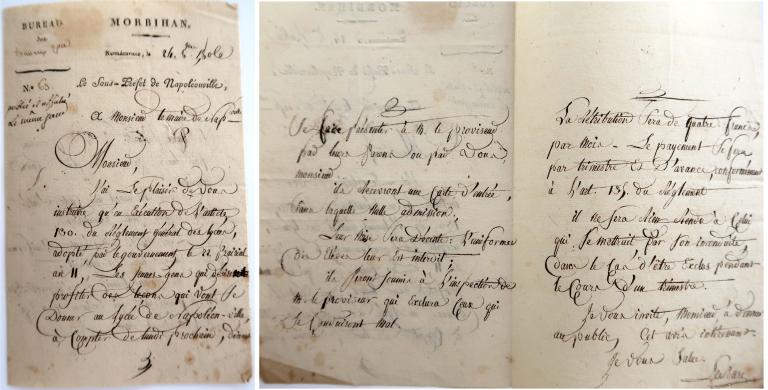 BUREAU
MORBIHAN.
des
Napoléonville, le 24. 8bre 1806
N.º 63.
publié et affiché
Le même jour
Le Sous-Préfet de Napoléonville,
A Monsieur le maire de Nap
Monsieur,
J'ai Le plaisir de vous
instruire qu'en Exécution de l'article
130. du Règlement général des lycées,
adopté par le gouvernement le 22 prairial
an 11, les jeunes gens qui désirent
profiter des leçons qui vont se
Donner au lycée de Napoléon-ville
à Compter de lundi prochain, doivent
Se faire présenter à M. le proviseur
par leurs Parens ou par Vous,
monsieur.
ils recevront une Carte d'entrée,
sans laquelle nulle admission.
Leur mise Sera Décente: l'uniforme
des élèves leur est interdit;
ils seront soumis à l'inspection de
M. le proviseur qui exclura Ceux qui
se Conduiront mal.
La rétribution Sera de quatre francs,
par Mois. Le payement Se fera
par trimestre Et D'avance, conformément
à l'art. 135. du Règlement
il ne sera rien rendu à Celui
qui Se mettroit Par Son inconduite,
Dans le Cas d'être Exclus pendant
le Cours d'un trimestre.
Je Vous invite, Monsieur, à donner
au public, Cet avis intéressant.
Je Vous Salue.